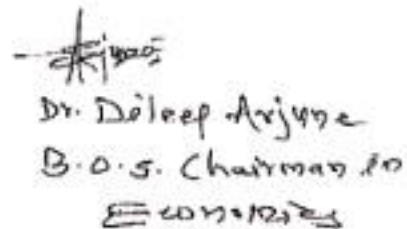 Dr. Dileep Arjune
B.O.S. Chairman in
Economics